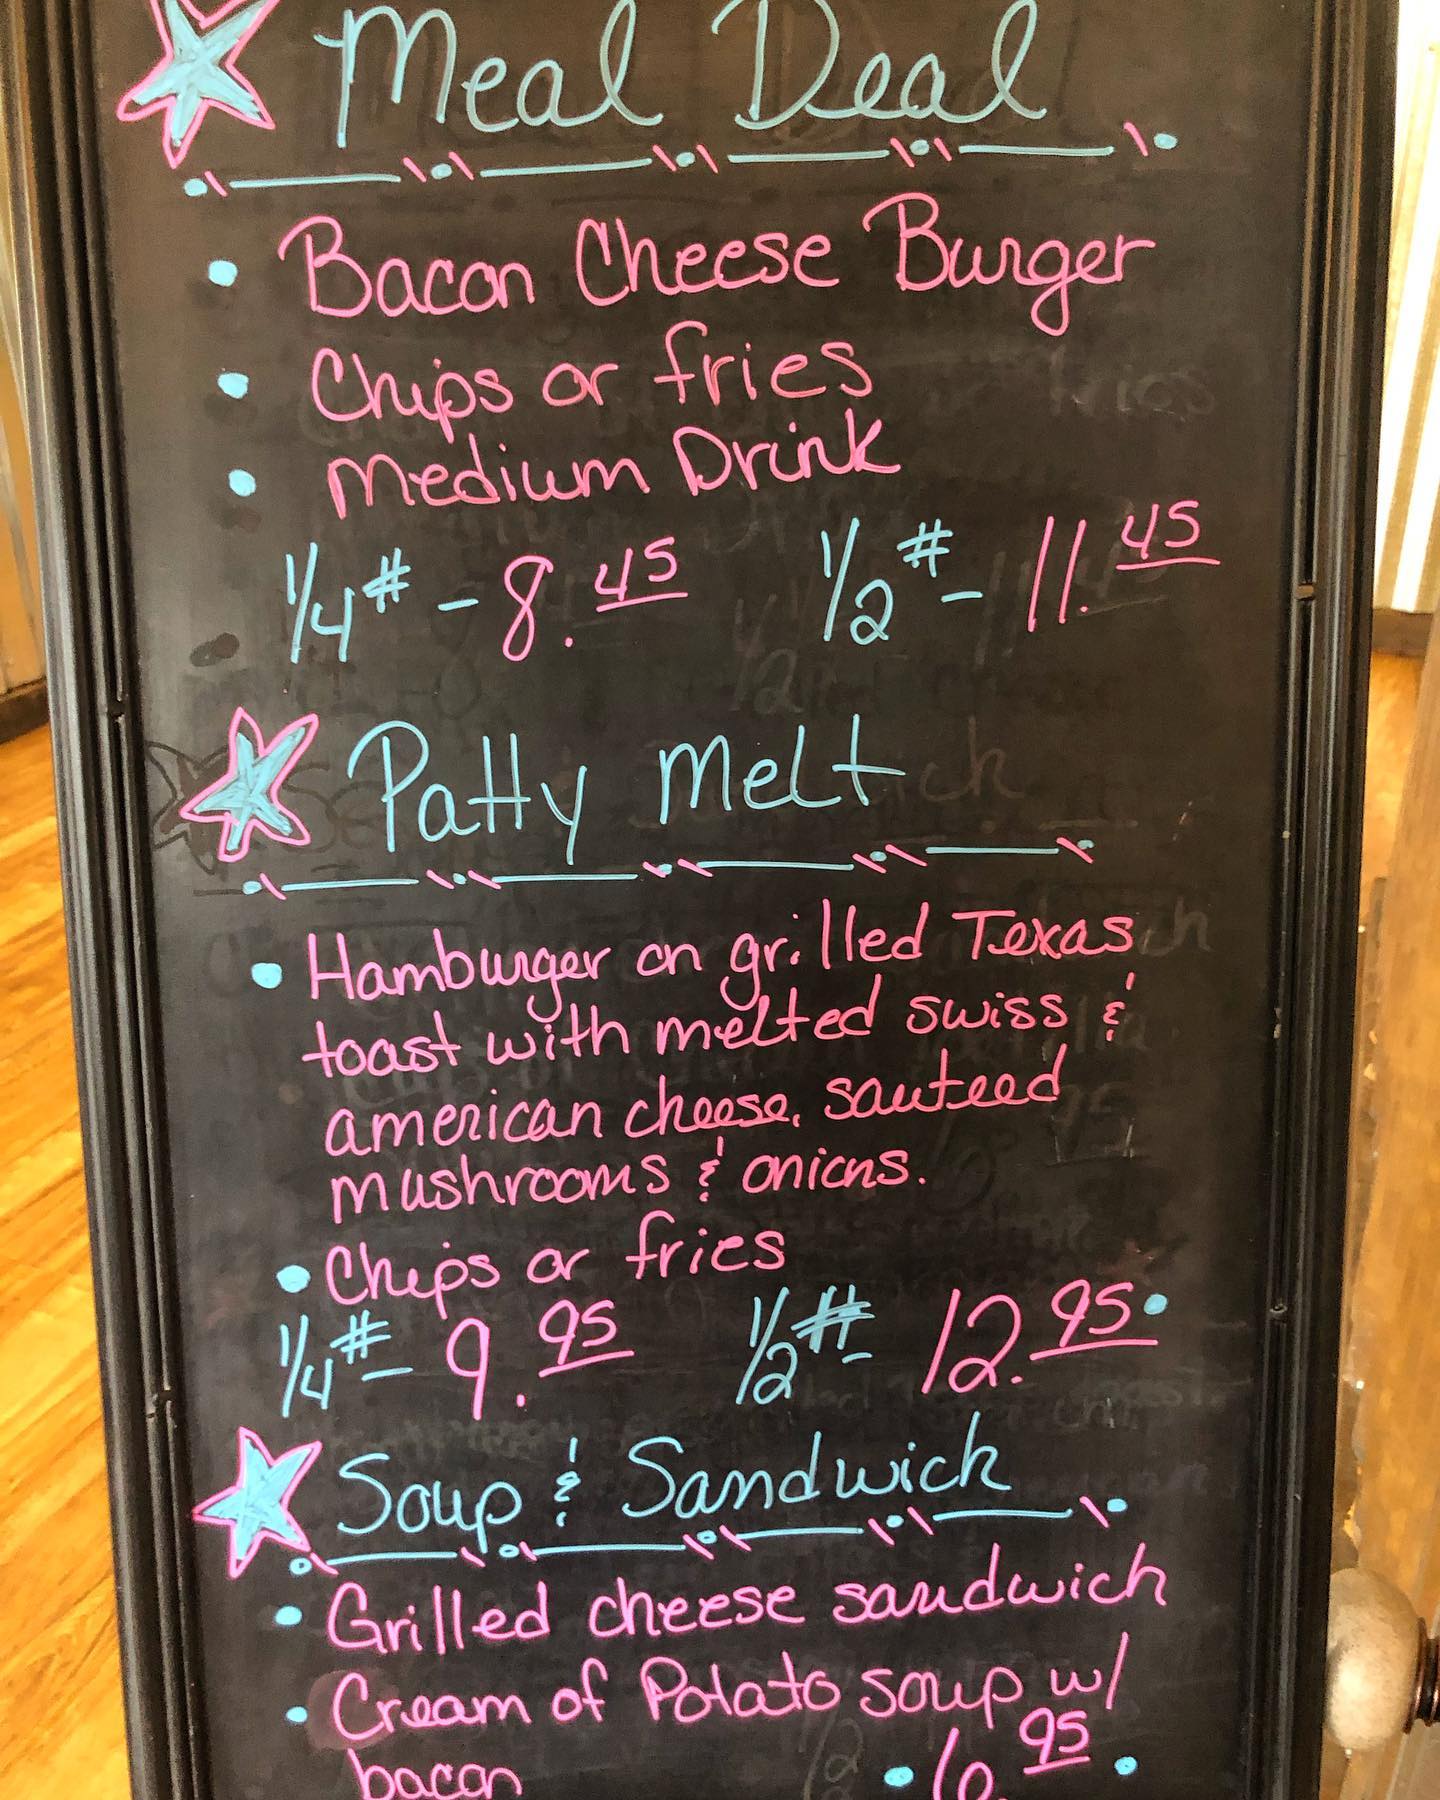 Meal Deal
• Bacon Cheese Burger
• Chips or fries
• Medium Drink
1/4# - 8.45 1/2# - 11.45
Patty Melt
• Hamburger on grilled Texas
toast with melted swiss &
american cheese, sauteed
mushrooms & onions.
• Chips or fries
1/4# - 9.95 1/2# - 12.95
Soup & Sandwick
• Grilled cheese sandwich
• Cream of Potato soup w/
bacon • 6.95 •